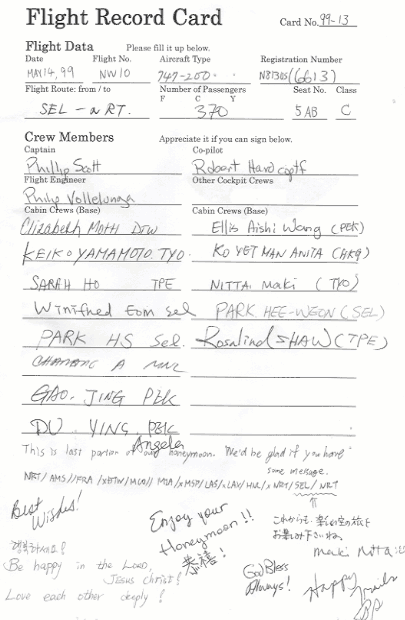 Flight Record Card
Card No. 99-13
Flight Data Please fill it up below.
Date Flight No. Aircraft Type Registration Number
MAY 14, 99 NW 10 747-200 (6613)
Flight Route: from / to Number of Passengers Seat No. Class
F C Y
SEL - NRT. 370 5AB C
Crew Members Appreciate it if you can sign below.
Captain Co-pilot
Phillip Scott Robert
Flight Engineer Other Cockpit Crews
Philip
Cabin Crews (Base) Cabin Crews (Base)
Elizabeth Moth DTW Ellis Aishi Wang (PEK)
KEIKO YAMAMOTO TYO. KO YET MAN ANITA (HKG)
SARAH HO TPE NITTA Maki (TYO)
Winifred Eom Sel PARK HEE-WEON (SEL)
PARK HS Sel. Rosalind SHAW (TPE)
A
GAO. JING PEK
DU. YING. PEK
Angela
This is last portion of our honeymoon. We'd be glad if you have
some message.
NRT/AMS//FRA/xDTW/MCO//MIA/xMSP/LAS/xLAX/HNL/xNRT/SEL/NRT
Best Wishes!
Enjoy your Honeymoon!!
恭禧!
これからも楽しい空の旅を
お楽しみ下さいね。
Maki Nitta
행복하세요!
Be happy in the LORD,
JESUS Christ!
Love each other deeply!
God Bless Always!
Happy Trails